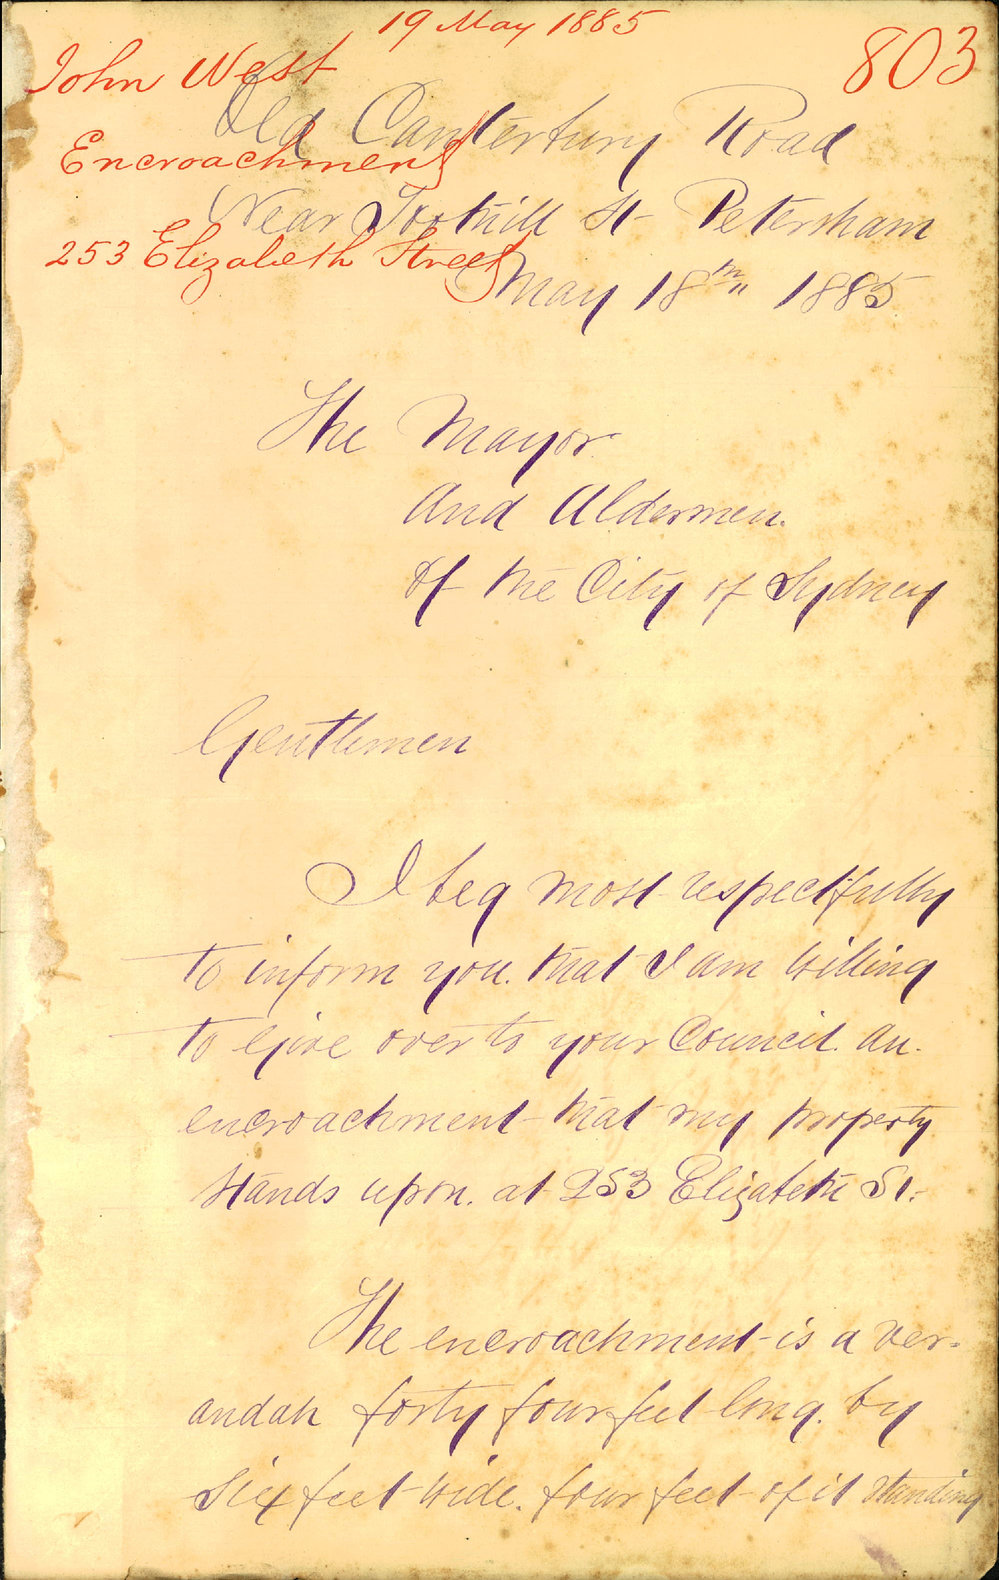 19 May 1885
803
John West
Encroachment
253 Elizabeth Street
Old Canterbury Road
Near Toothill St Petersham
May 18th 1885
The Mayor
And Aldermen.
Of the City of Sydney
Gentlemen
I beg most respectfully
to inform you. that I am willing
to give over to your Council. an.
encroachment that my property
stands upon. at 253 Elizabeth St.
The encroachment is a ver-
andah forty four feet long. by
six feet wide. four feet of it standing